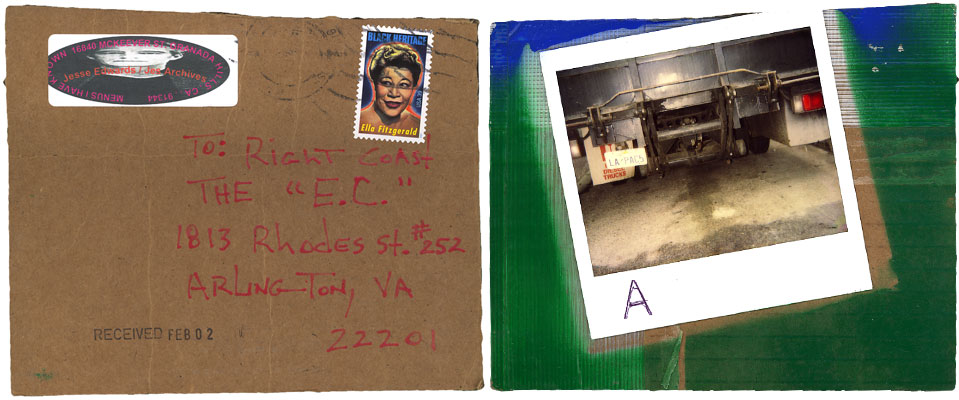 MENUS I HAVE KNOWN 16840 MCKEEVER ST. GRANADA HILLS, CA. 91344
Jesse Edwards / Joe Archives
BLACK HERITAGE
Ella Fitzgerald
TO: RIGHT COAST
THE "E.C."
1813 Rhodes St. #252
ARLINGTON, VA
22201
RECEIVED FEB 02
LA-PACS
DIESEL
TRUCKS
A